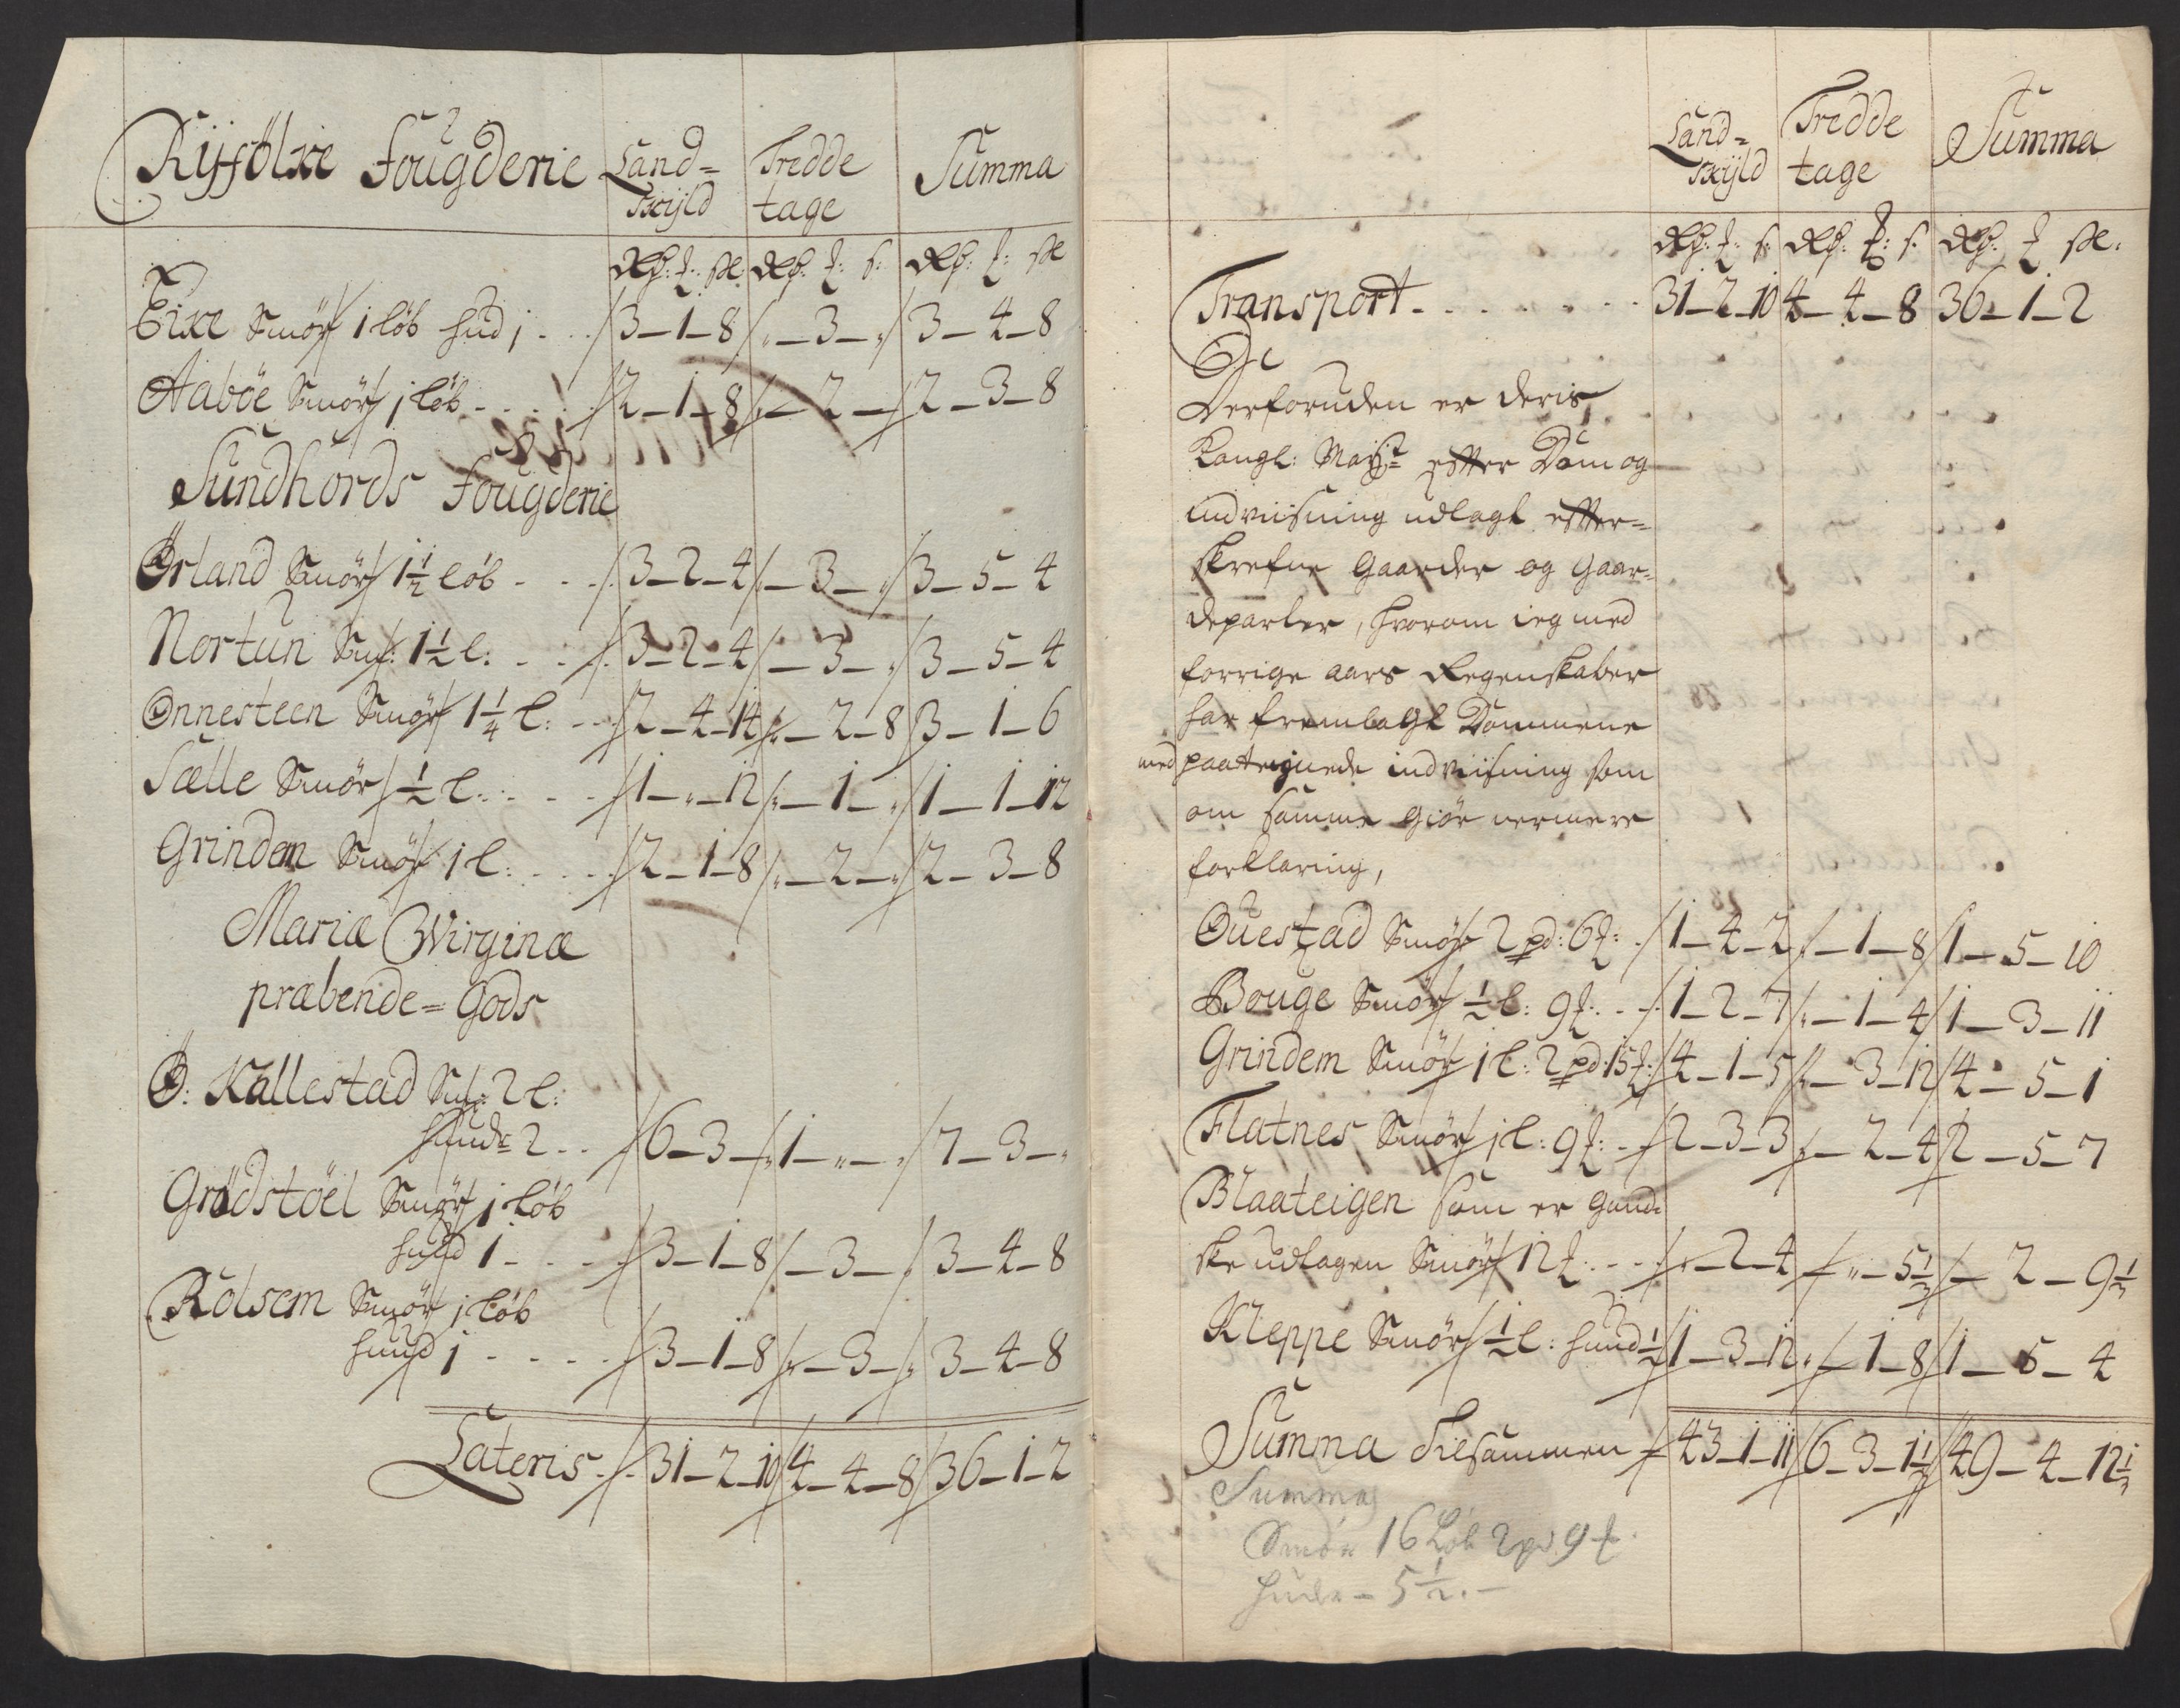 Ryfölke Fougderie Land= Tredde Summa
skyld tage
Rdr: ₰: sk: Rdr: ₰: s: Rdr: ₰: sk
Eike Smör 1 löb hud 1 - - 3 - 1 - 8 " - 3 - " 3 - 4 - 8
Aaböe Smör 1 löb - - - 2 - 1 - 8 " - 2 - 2 - 3 - 8
Sundhords Fougderie
Örland Smör 1½ löb - - - 3 - 2 - 4 " - 3 - " 3 - 5 - 4
Nortun Sm: 1½ l: - - - 3 - 2 - 4 - 3 - " 3 - 5 - 4
Onnesteen Smör 1¼ l: - - 2 - 4 - 14 " - 2 - 8 3 - 1 - 6
Sælle Smör ½ l: - - - 1 - " - 12 " - 1 - " 1 - 1 - 12
Grindem Smör 1 l: - - - 2 - 1 - 8 " - 2 - " 2 - 3 - 8
Mariæ Wirginæ
præbende = Gods
Ö: Kallestad Sm: 2 l:
huder 2 - - 6 - 3 - " 1 - " - " 7 - 3 - "
Grödstöel Smör 1 löb
hud 1 - - - 3 - 1 - 8 - 3 - " 3 - 4 - 8
Rolsem Smör 1 löb
huud 1 - - - - 3 - 1 - 8 " - 3 - " 3 - 4 - 8
Lateris - 31 - 2 - 10 4 - 4 - 8 36 - 1 - 2
Land= Tredde Summa
skyld tage
Rdr: ₰: s: Rdr: ₰: s. Rdr: ₰ sk:
Transport - - - - - - - 31 - 2 - 10 4 - 4 - 8 36 - 1 - 2
Derforuden er deris
Kongl: Mayst: efter Dom og
indviisning udlagt efter=
skrefne Gaarder og Gaar=
departer, hvorom ieg med
forrige aars Regenskaber
har fremlagt Dommene
med paateignede indviisning som
om samme giör nermere
forklaring,
Ouestad Smör 2 pd: 6 ₰: - 1 - 4 - 2 " - 1 - 8 1 - 5 - 10
Bouge Smör ½ l: 9 ₰: - - 1 - 2 - 7 " - 1 - 4 1 - 3 - 11
Grindem Smör 1 l: 2 pd: 15 ₰: 4 - 1 - 5 " - 3 - 12 4 - 5 - 1
Flatnes Smör 1 l: 9 ₰: - 2 - 3 - 3 " - 2 - 4 2 - 5 - 7
Blaateigen som er gand=
ske udlagen Smör 12 ₰: - - - " - 2 - 4 - " - 5⅓ - 2 - 9⅓
Kleppe Smör ½ l: huud ½ 1 - 3 - 12 " - 1 - 8 1 - 5 - 4
Summa Tilsammen - 43 - 1 - 11 6 - 3 - 1⅓ 49 - 4 - 12⅓
Summa
Smör 16 Löb 2 pd 9 ₰.
Huder - 5½. -